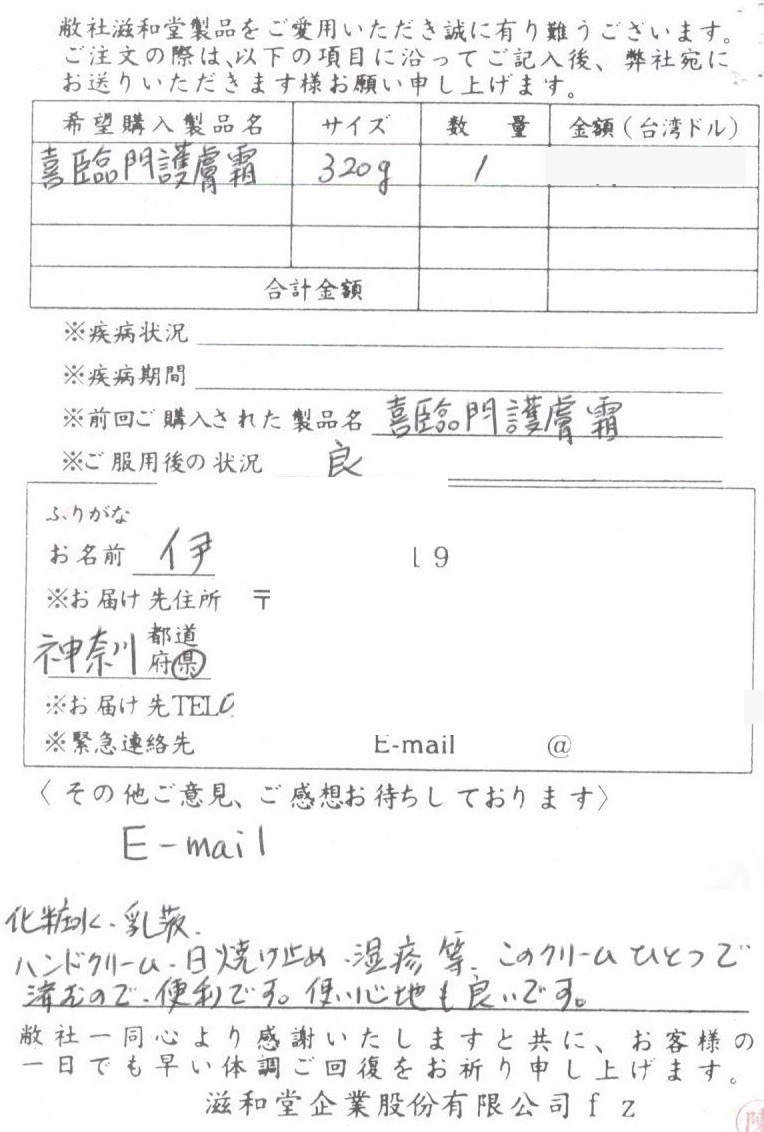 敝社滋和堂製品をご愛用いただき誠に有り難うございます。
ご注文の際は、以下の項目に沿ってご記入後、弊社宛に
お送りいただきます様お願い申し上げます。
希望購入製品名 サイズ 数量 金額(台湾ドル)
喜臨門護膚霜 320g 1
合計金額
※疾病状況
※疾病期間
※前回ご購入された製品名 喜臨門護膚霜
※ご服用後の状況 良
ふりがな
お名前 伊 19
※お届け先住所 〒
神奈川 都道
府県
※お届け先TEL
※緊急連絡先 E-mail @
〈その他ご意見、ご感想お待ちしております〉
E-mail
化粧水・乳液、
ハンドクリーム・日焼け止め・湿疹等、このクリームひとつで
済むので、便利です。使い心地も良いです。
敝社一同心より感謝いたしますと共に、お客様の
一日でも早い体調ご回復をお祈り申し上げます。
滋和堂企業股份有限公司fz
陳